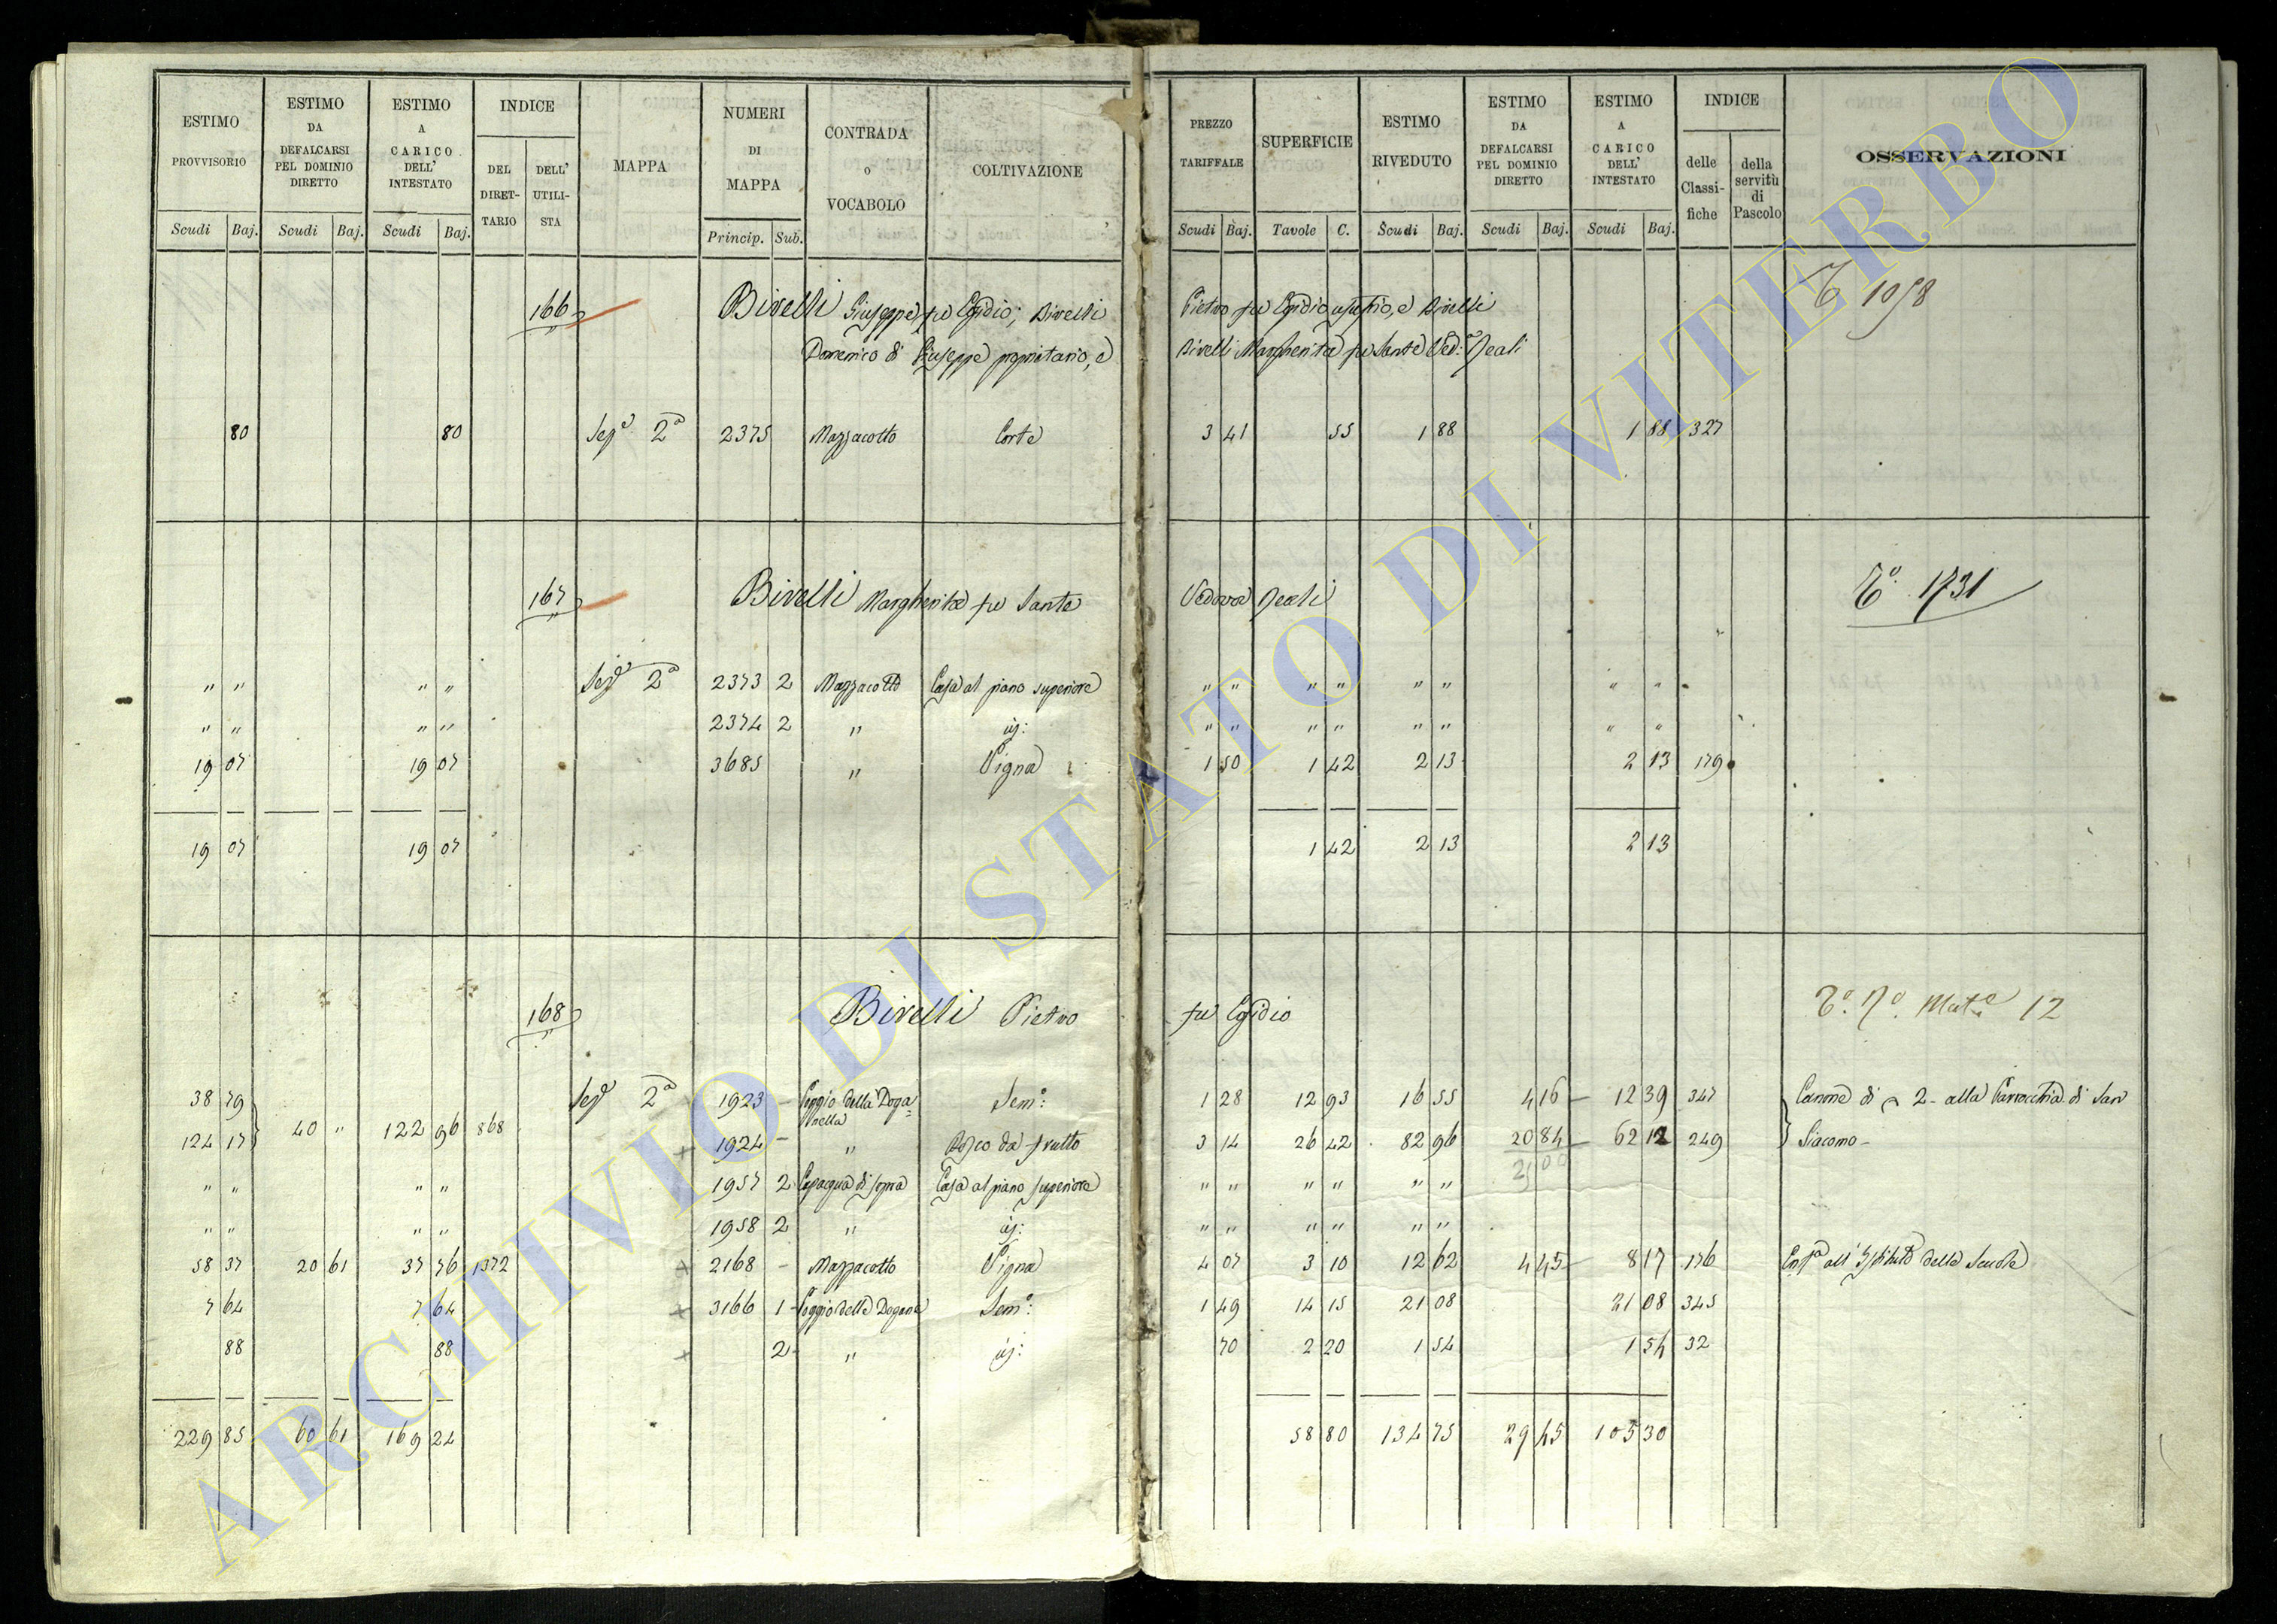 ESTIMO PROVVISORIO | ESTIMO DA DEFALCARSI PEL DOMINIO DIRETTO | ESTIMO A CARICO DELL' INTESTATO | INDICE | MAPPA | NUMERI DI MAPPA | CONTRADA o VOCABOLO | COLTIVAZIONE | PREZZO TARIFFALE | SUPERFICIE | ESTIMO RIVEDUTO | ESTIMO DA DEFALCARSI PEL DOMINIO DIRETTO | ESTIMO A CARICO DELL' INTESTATO | INDICE | OSSERVAZIONI
DEL DIRET-TARIO | DELL' UTILI-STA | delle Classi-fiche | della servitù di Pascolo
Scudi | Baj. | Scudi | Baj. | Scudi | Baj. | Princip. | Sub. | Scudi | Baj. | Tavole | C. | Scudi | Baj. | Scudi | Baj. | Scudi | Baj.
166 Bivelli Giuseppe fu Egidio; Bivelli Pietro fu Egidio e Bivelli 1058
Domenico di Giuseppe proprietario, e Bivelli Margherita fu Sante Ved:
80 | 80 | Sez.e 2a | 2375 | Mazzacotto | Corte | 3 41 | 55 | 1 88 | 1 88 | 327
167 Bivelli Margherita fu Sante Vedova 1731
" " | " " | Sez.e 2a | 2373 | 2 | Mazzacotto | Casa al piano superiore | " " | " " | " " | " "
" " | " " | 2374 | 2 | " | " " | " " | " " | " "
19 07 | 19 07 | 3685 | " | Vigna | 1 50 | 1 42 | 2 13 | 2 13 | 179
19 07 | 19 07 | 1 42 | 2 13 | 2 13
168 Bivelli Pietro fu Egidio 12
38 79 | Sez.e 2a | 1923 | Poggio della Doganella | Sem.o: | 1 28 | 12 93 | 16 55 | 4 16 | 12 39 | 347 | Canone di 2 - alla Parrocchia di San
124 17 | 40 " | 122 96 | 868 | 1924 | " | Bosco da frutto | 3 14 | 26 42 | 82 96 | 20 84 | 62 12 | 249 | Giacomo -
" " | " " | 1957 | 2 | Capacqua di sopra | Casa al piano superiore | " " | " " | " "
" " | " " | 1958 | 2 | " | " " | " " | " "
58 37 | 20 61 | 37 76 | 1372 | 2168 | Mazzacotto | Vigna | 4 07 | 3 10 | 12 62 | 4 45 | 8 17 | 176 | all' Istituto delle Scuole
7 64 | 7 64 | 3166 | 1 | Poggio della Dogana | Sem.o: | 1 49 | 14 15 | 21 08 | 21 08 | 345
88 | 88 | 2 | " | 70 | 2 20 | 1 54 | 1 54 | 32
229 85 | 60 61 | 169 24 | 58 80 | 134 75 | 29 45 | 105 30
ARCHIVIO DI STATO DI VITERBO